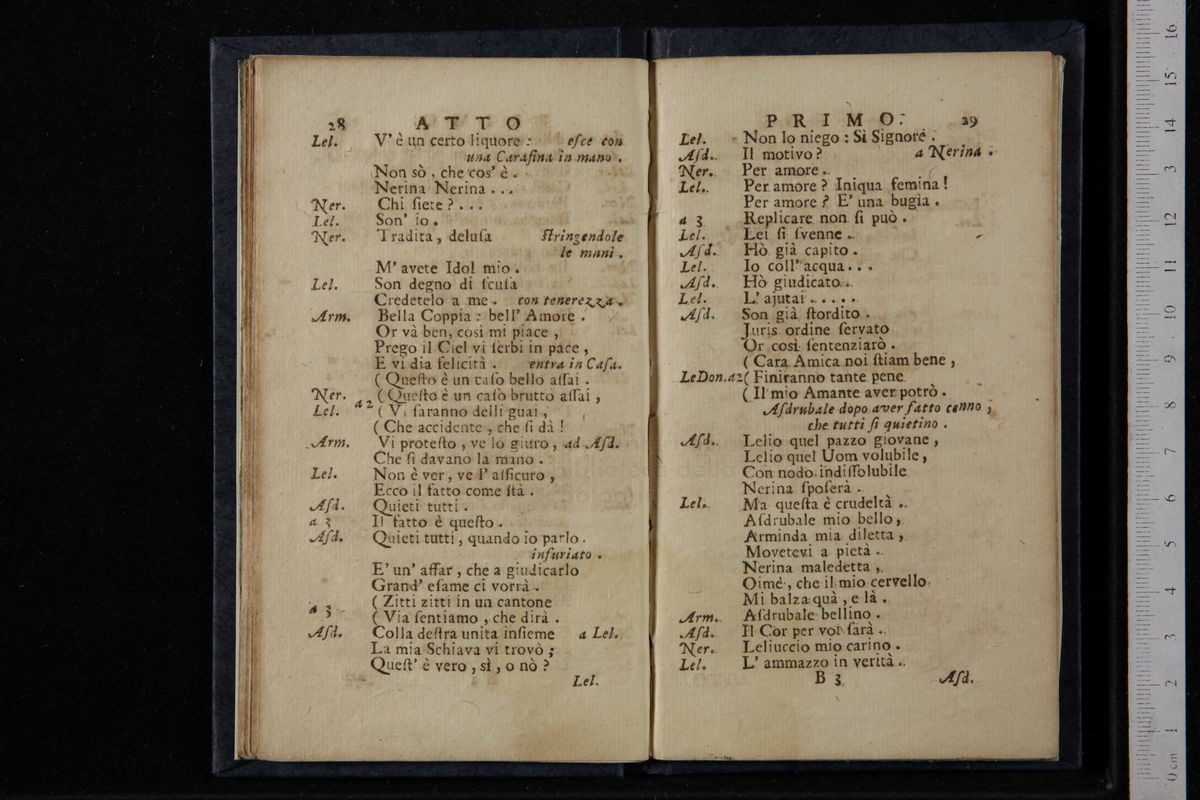 28 ATTO
Lel. V' è un certo liquore : eſce con
una Carafina in mano .
Non sò , che cos' è .
Nerina Nerina . . .
Ner. Chi ſiete ? . . .
Lel. Son' io .
Ner. Tradita , deluſa ſtringendole
le mani .
M' avete Idol mio .
Lel. Son degno di ſcuſa
Credetelo a me . con tenerezza .
Arm. Bella Coppia : bell' Amore .
Or và ben, così mi piace ,
Prego il Ciel vi ſerbi in pace ,
E vi dia felicità . entra in Caſa.
( Queſto è un caſo bello aſſai .
Ner. ( Queſto è un caſo brutto aſſai ,
Lel. a2 ( Vi ſaranno delli guai ,
( Che accidente , che ſi dà !
Arm. Vi proteſto , ve lo giuro , ad Aſd.
Che ſi davano la mano .
Lel. Non è ver, ve l' aſſicuro ,
Ecco il fatto come ſtà .
Aſd. Quieti tutti .
a 3 Il fatto è queſto .
Aſd. Quieti tutti , quando io parlo .
infuriato .
E' un' affar , che a giudicarlo
Grand' eſame ci vorrà .
a 3 ( Zitti zitti in un cantone
( Via ſentiamo , che dirà .
Aſd. Colla deſtra unita inſieme a Lel.
La mia Schiava vi trovò ;
Queſt' è vero , sì , o nò ?
Lel.
PRIMO. 29
Lel. Non lo niego : Sì Signore .
Aſd. Il motivo ? a Nerina .
Ner. Per amore .
Lel. Per amore ? Iniqua femina !
Per amore ? E' una bugìa .
a 3 Replicare non ſi può .
Lel. Lei ſi ſvenne .
Aſd. Hò già capito .
Lel. Io coll' acqua . . .
Aſd. Hò giudicato .
Lel. L' ajutai . . . . .
Aſd. Son già ſtordito .
Juris ordine ſervato
Or così ſentenziarò .
( Cara Amica noi ſtiam bene ,
LeDon.a2 ( Finiranno tante pene
( Il mio Amante aver potrò .
Aſdrubale dopo aver fatto cenno ,
che tutti ſi quietino .
Aſd. Lelio quel pazzo giovane ,
Lelio quel Uom volubile ,
Con nodo indiſſolubile
Nerina ſpoſerà .
Lel. Ma queſta è crudeltà .
Aſdrubale mio bello ,
Arminda mia diletta ,
Movetevi a pietà .
Nerina maledetta ,
Oimè , che il mio cervello
Mi balza quà , e là .
Arm. Aſdrubale bellino .
Aſd. Il Cor per voi ſarà .
Ner. Leliuccio mio carino .
Lel. L' ammazzo in verità .
B 3 Aſd.
0 cm 1 2 3 4 5 6 7 8 9 10 11 12 13 14 15 16